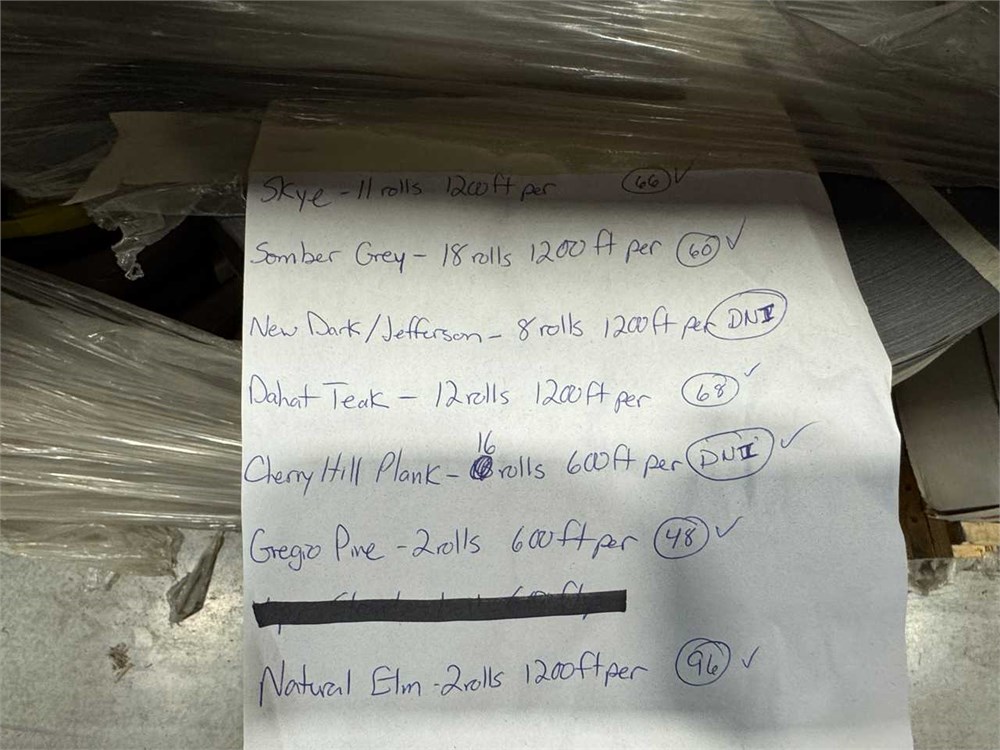 Skye - 11 rolls 1200 ft per 66 ✓
Somber Grey - 18 rolls 1200 ft per 60 ✓
New Dark/Jefferson - 8 rolls 1200 ft per DNI
Dahat Teak - 12 rolls 1200 ft per 68 ✓
Cherry Hill Plank - 16 rolls 600 ft per DNI ✓
Gregio Pine - 2 rolls 600 ft per 48 ✓
Natural Elm - 2 rolls 1200 ft per 96 ✓